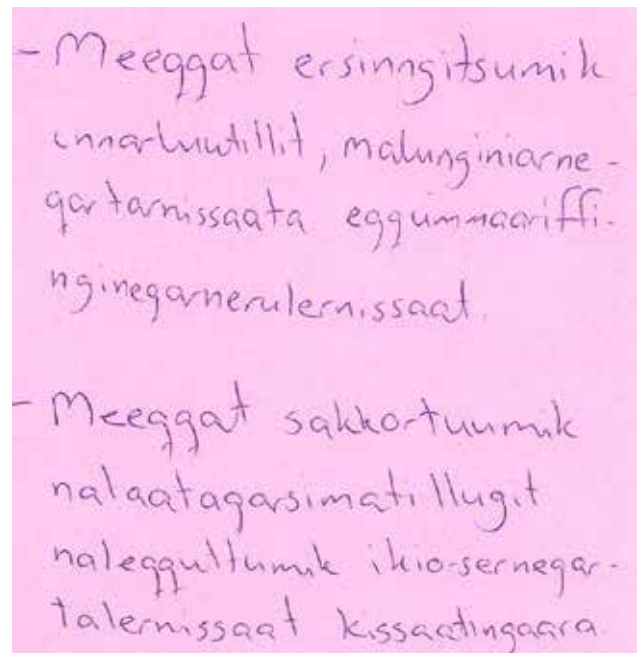 - Meeqqat ersinngitsumik
innarluutillit, malunginiarne-
qartarnissaata eqqummaariffi-
ngineqarnerulernissaat.
- Meeqqat sakkortuumik
nalaataqarsimatillugit
naleqquttumik ikiorserneqar-
talernissaat kissaatingaara.